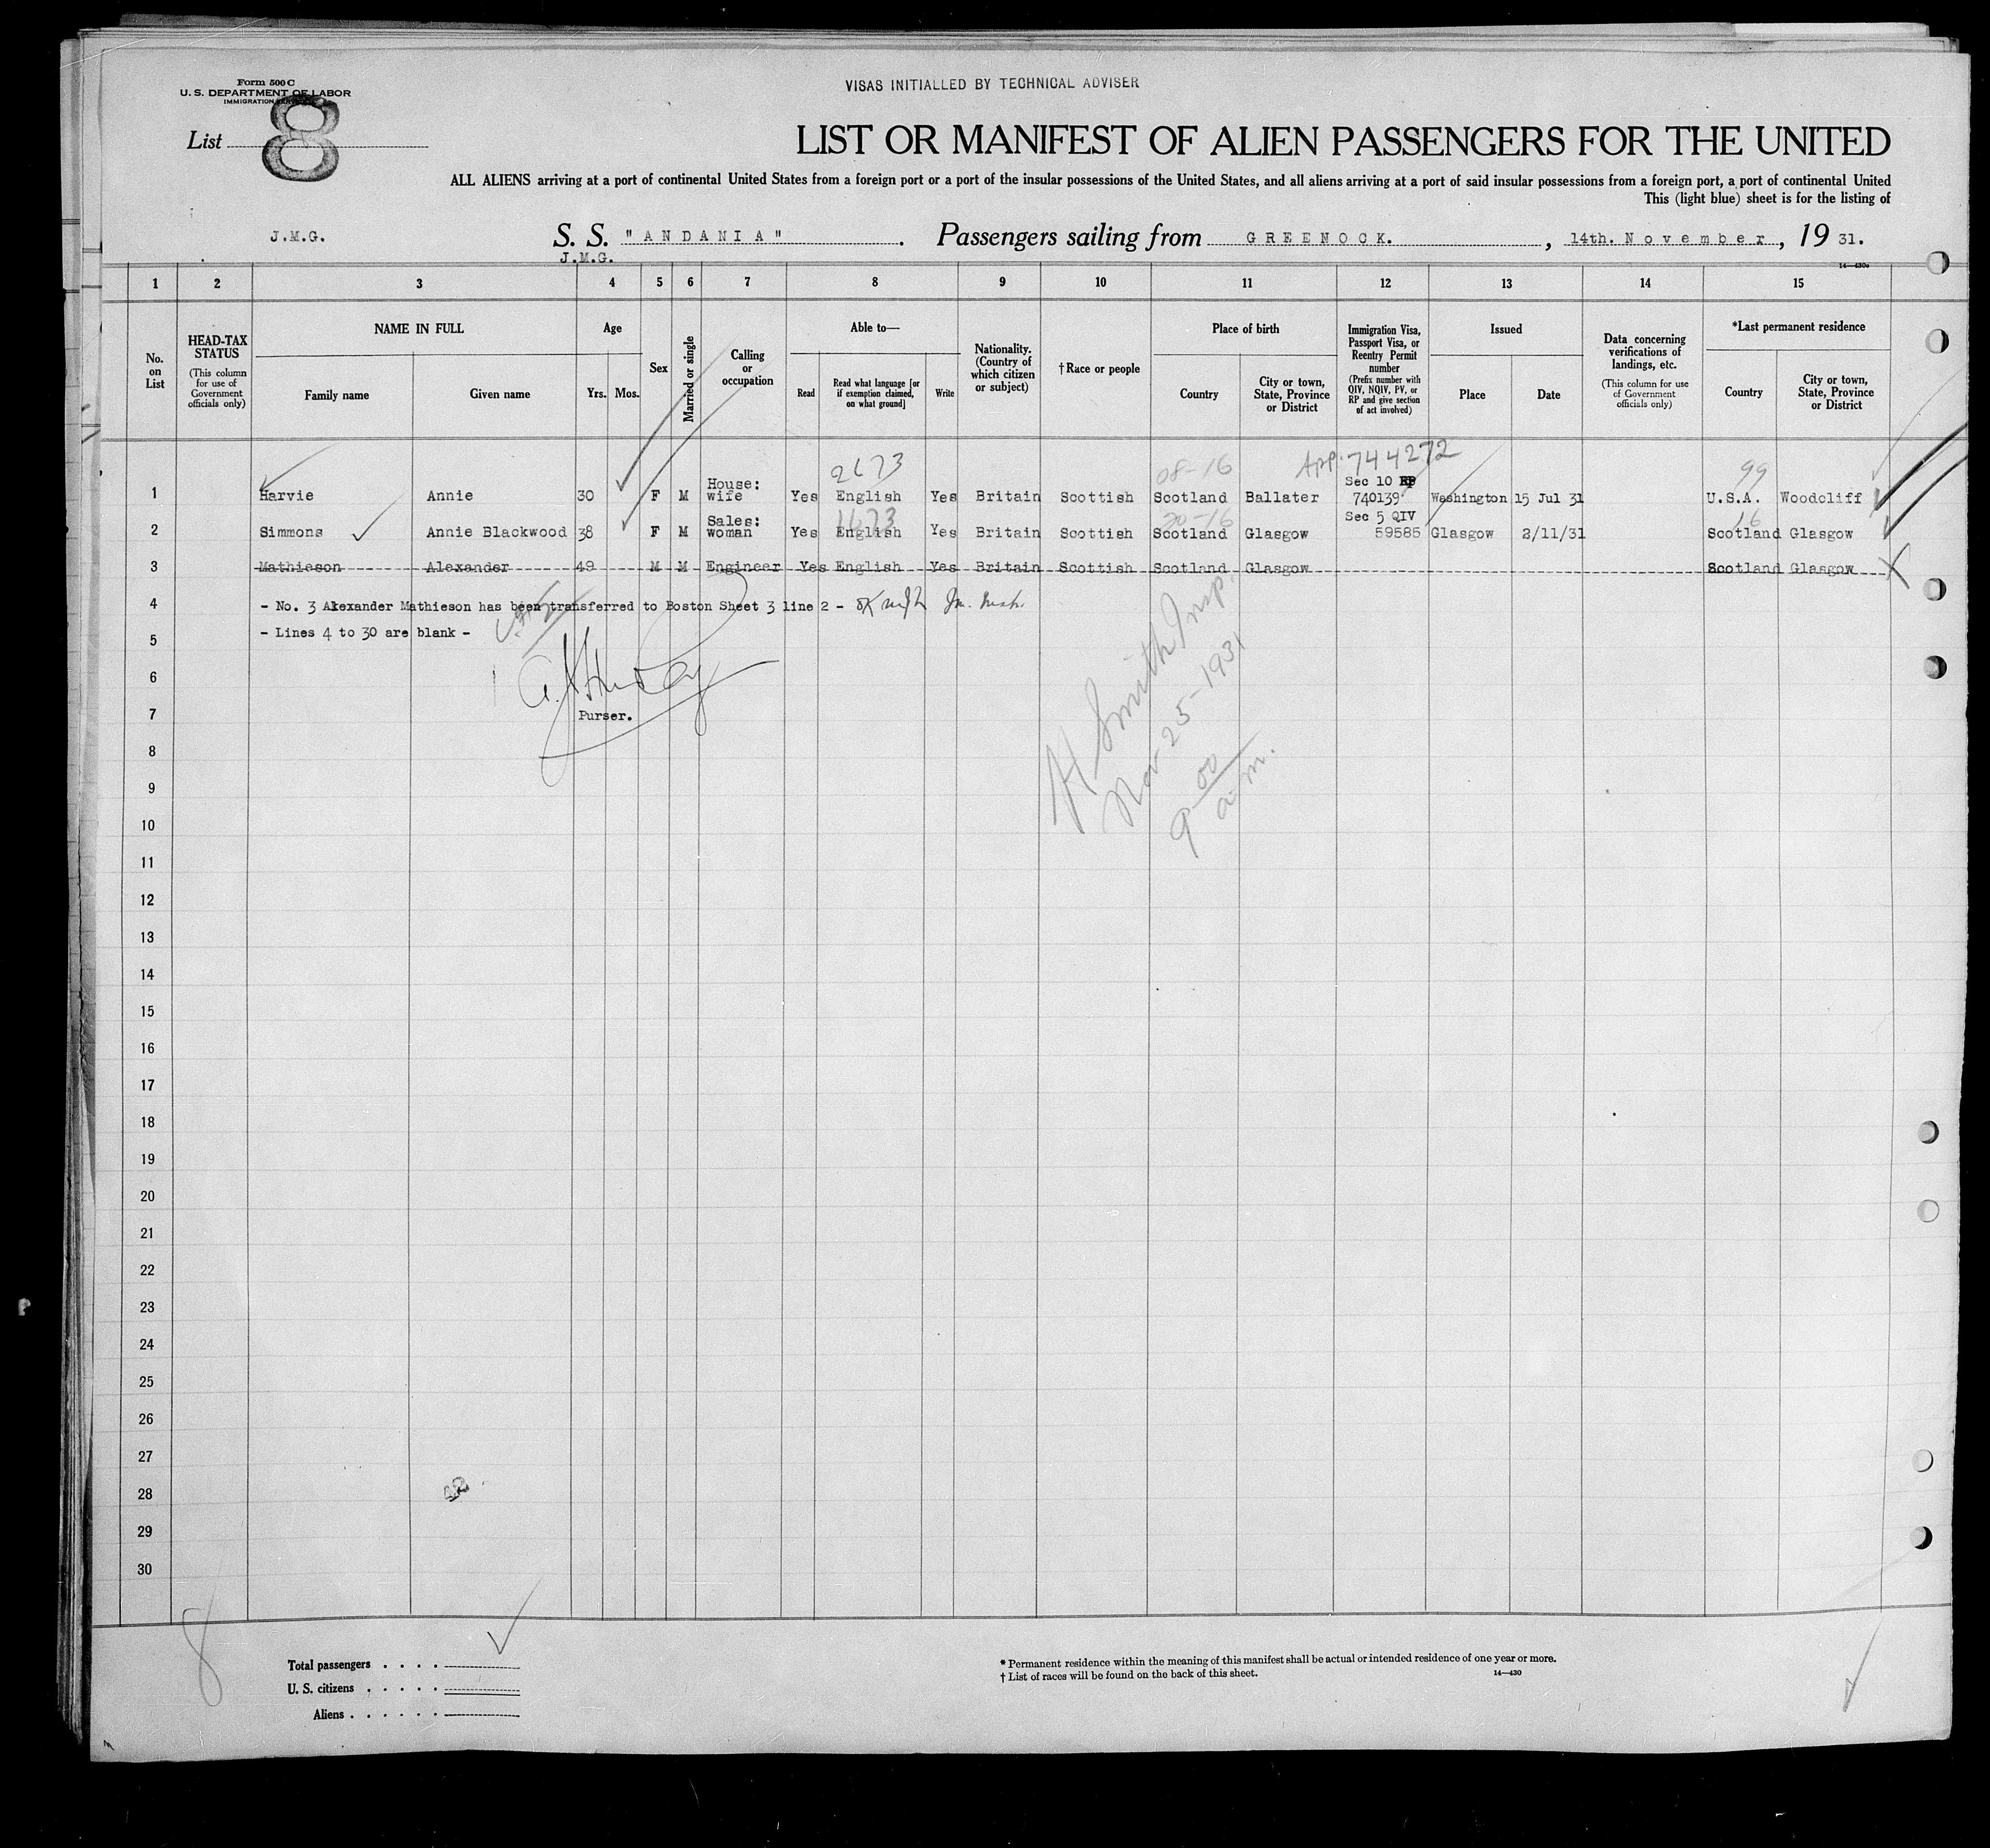 Form 500 C
U. S. DEPARTMENT OF LABOR
IMMIGRATION SERVICE
VISAS INITIALLED BY TECHNICAL ADVISER
List 8
LIST OR MANIFEST OF ALIEN PASSENGERS FOR THE UNITED
ALL ALIENS arriving at a port of continental United States from a foreign port or a port of the insular possessions of the United States, and all aliens arriving at a port of said insular possessions from a foreign port, a port of continental United
This (light blue) sheet is for the listing of
J.M.G. S. S. "ANDANIA" . Passengers sailing from GREENOCK. , 14th. November , 19 31.
J.M.G.
14—430a
1 2 3 4 5 6 7 8 9 10 11 12 13 14 15
No. on List
HEAD-TAX STATUS (This column for use of Government officials only)
NAME IN FULL
Family name Given name
Age
Yrs. Mos.
Sex
Married or single
Calling or occupation
Able to—
Read Read what language [or if exemption claimed, on what ground] Write
Nationality. (Country of which citizen or subject)
†Race or people
Place of birth
Country City or town, State, Province or District
Immigration Visa, Passport Visa, or Reentry Permit number (Prefix number with QIV, NQIV, PV, or RP and give section of act involved)
Issued
Place Date
Data concerning verifications of landings, etc. (This column for use of Government officials only)
*Last permanent residence
Country City or town, State, Province or District
2673 08-16 App. 744272 99
House: Sec 10 RP
1 Harvie Annie 30 F M wife Yes English Yes Britain Scottish Scotland Ballater 740139 Washington 15 Jul 31 U.S.A. Woodcliff
Sales: 1673 20-16 Sec 5 QIV 16
2 Simmons Annie Blackwood 38 F M woman Yes English Yes Britain Scottish Scotland Glasgow 59585 Glasgow 2/11/31 Scotland Glasgow
3 Mathieson Alexander 49 M M Engineer Yes English Yes Britain Scottish Scotland Glasgow Scotland Glasgow
4 - No. 3 Alexander Mathieson has been transferred to Boston Sheet 3 line 2 -
5 - Lines 4 to 30 are blank -
6
7 Purser.
H Smith Insp.
Nov 25-1931
9 00 a.m.
8
9
10
11
12
13
14
15
16
17
18
19
20
21
22
23
24
25
26
27
28
29
30
8
Total passengers . . . .
U. S. citizens . . . . .
Aliens . . . . . .
* Permanent residence within the meaning of this manifest shall be actual or intended residence of one year or more.
† List of races will be found on the back of this sheet. 14—430